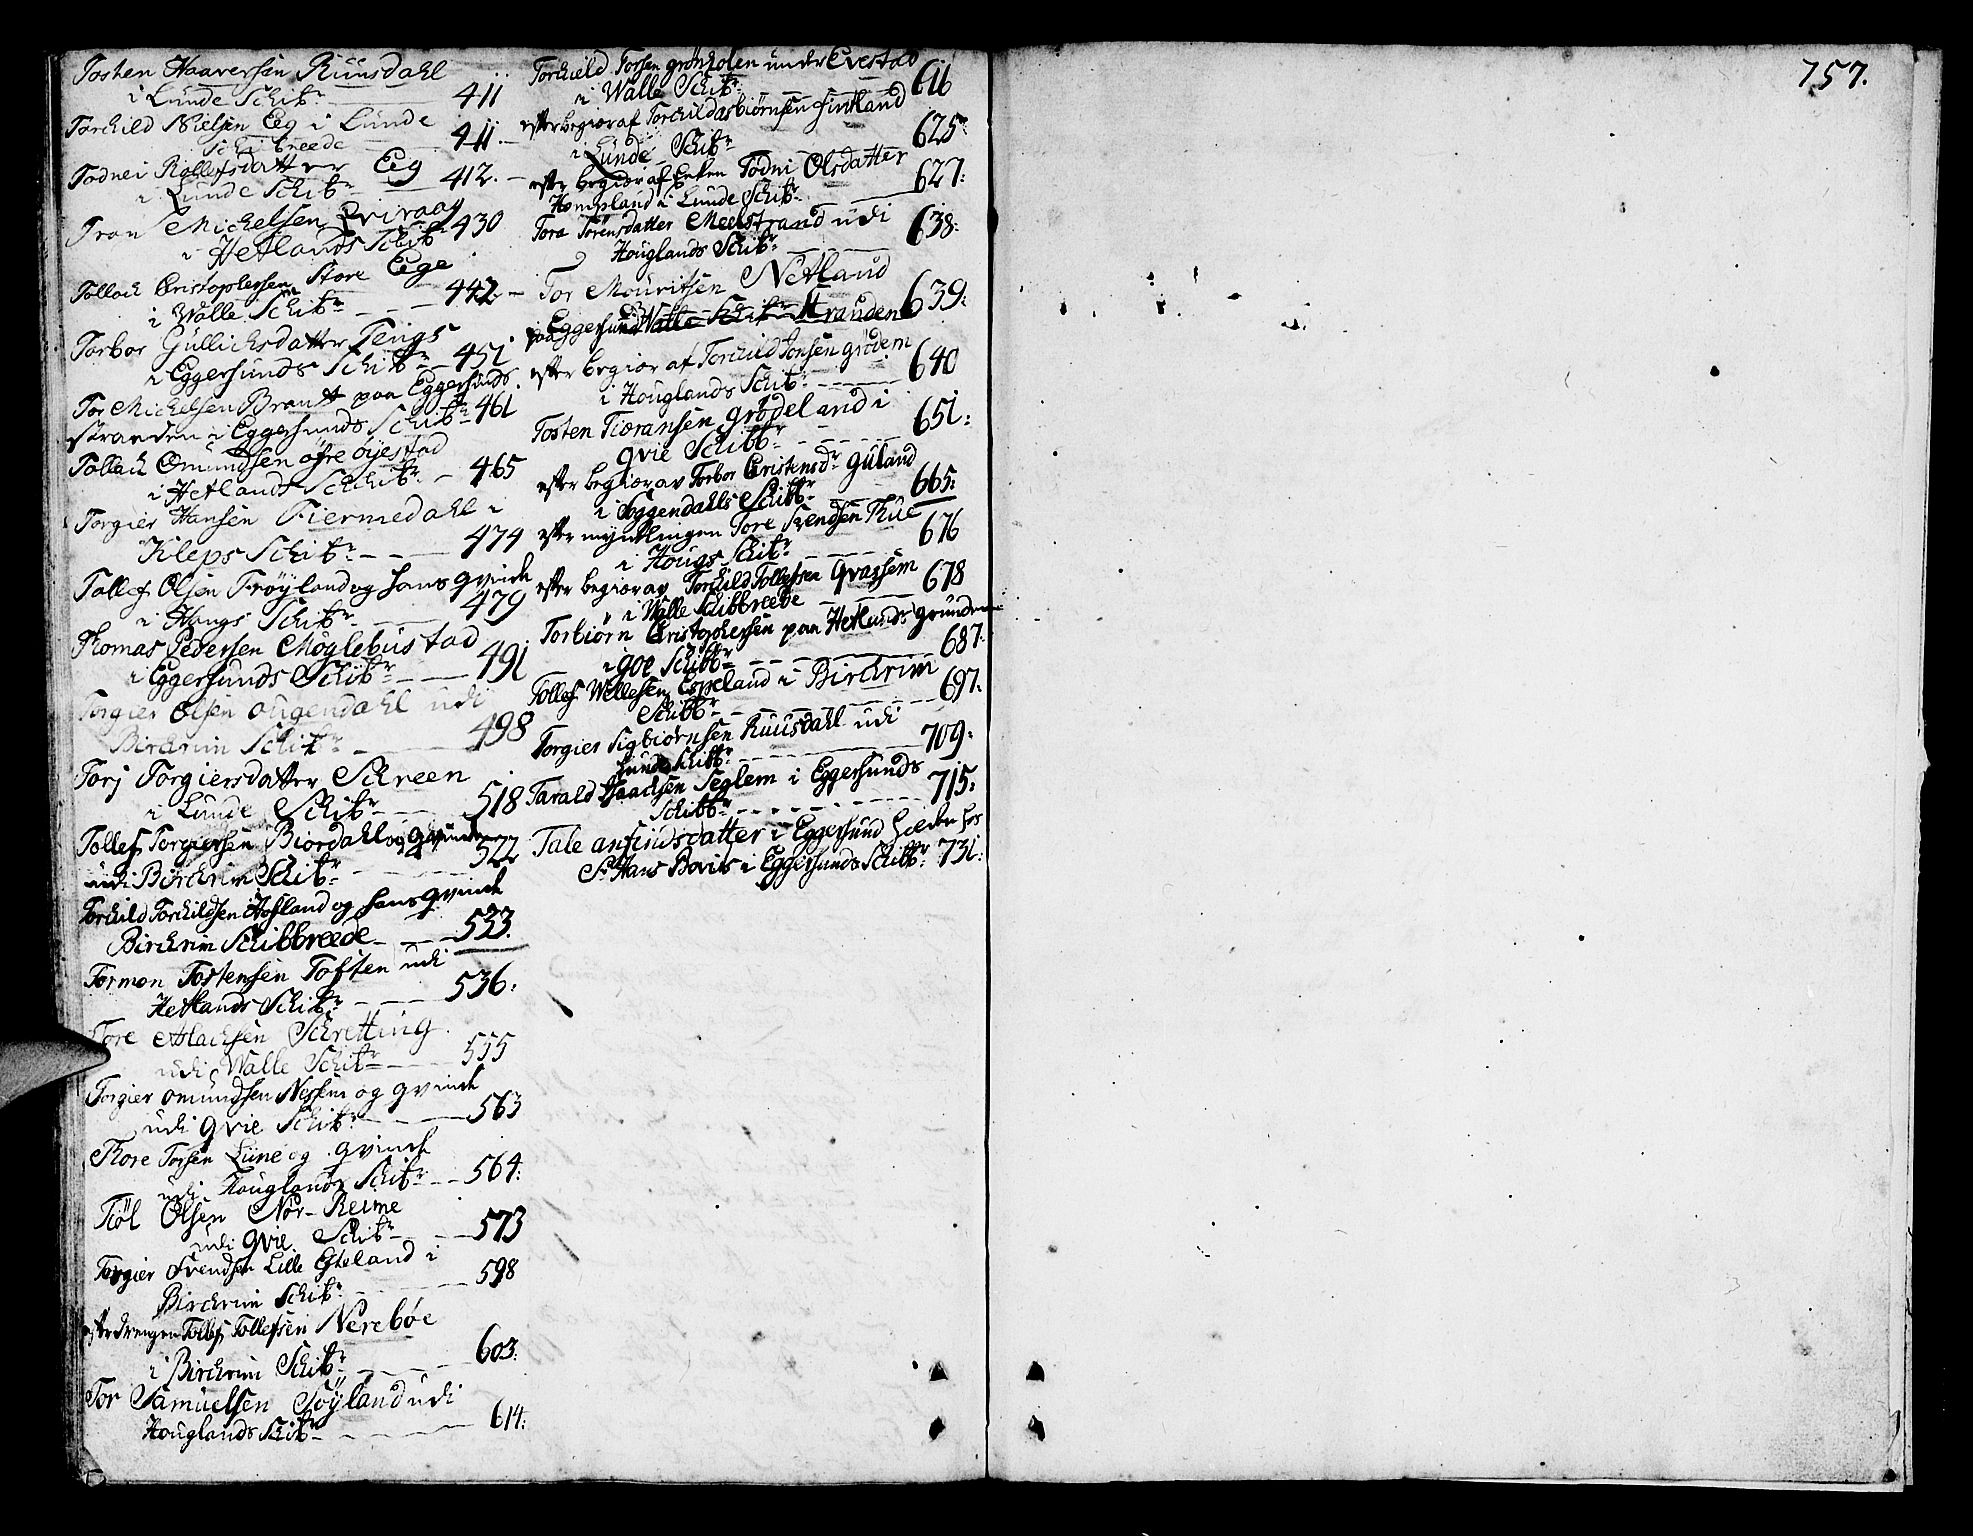 Tosten Haaversen Ruusdahl
i Lunde Schibr 411
Torchild Nielsen Eeg i Lunde
Schibreede 411.
Todnei Rollefsdatter Eeg
i Lunde Schibr 412.
Tron Michelsen
i Hetlands Schibr 430
Tollack Cristophersen Store Ege
i Walle Schibr 442.
Torbor Gullichsdatter Tengs
i Eggersunds Schibr 451
Tor Michelsen Brantt paa Eggersunds
stranden i Eggersunds Schibr 461
Tollack Omundsen øfre øyestad
i Hetlands Schibr 465
Torgier Hansen Tiermedahl i
Kleps Schibr 474
Tollef Olsen Frøyland og hans qvinde
i Haugs Schibr 479
Thomas Pedersen Møglebustad
i Eggersunds Schibr 491
Torgier Olsen ougendahl udi
Birchrim Schibr 498
Torj Torgiersdatter Schreen
i Lunde Schibr 518
Tollef Torgiersen Biordahl og qvinde
udi Birchrim Schibr 522
Torchild Torchildsen Hofland og hans qvinde
Birchrim Schibbreede 533.
Tormon Tostensen Toften udi
Hetlands Schibr 536:
Tore Aslachsen Schretting
udi Walle Schibr 555
Torgier omundsen Nessem og qvinde
udi qvie Schibr 563
Thore Torsen Lüne og qvinde
udi Houglands Schibr 564:
Tiøl Olsen Nor-Reime
udi qvie Schibr 573
Torgier Svendsen Lille Egeland i
Birchrim Schibr 598
efter drengen Tollef Tollefsen Nerebøe
i Birchrim Schibr 603:
Tor Samuelsen Søyland udi
Houglands Schibr 614:
Torchield Torsen grønholen under Evestad
i Walle Schibr 616
efter begiør af Torchild asbiørnsen Fintland
i Lunde Schibr 625
efter begiør af Enken Todni Olsdatter
Hompland i Lunde Schibr 627:
Tora Torensdatter Meelstrand udi
Houglands Schibr 638:
Tor Mouritsen Netland
i Walle Schibr 639:
paa Eggersund Stranden
efter begiør af Torchild Jonsen grødem
i Houglands Schibr 640
Tosten Tioransen grødeland i
qvie Schibbr 651:
efter begiør av Torbor Cristensdr guland
i Soggendahls Schibbr 665:
efter myndlingen Tore Svendsen Thue
i Hougs Schibr 676
efter begiør av Torchild Tollefsen Qvassem
i Walle Schibbreede 678
Torbiørn Cristophersen paa Hetlands grunden
i goe Schibbr 687:
Tollef Wellesen Espeland i Birchrim
Schibbr 697:
Torgier Sigbiørnsen Ruusdahl udi
Lunde Schibbr 709:
Tarald Haachsen Seglem i Eggersunds
Schibbr 715:
Tale anfindsdatter i Eggersund
Sr Hans Bovits i Eggersunds Schibbr 731:
757.